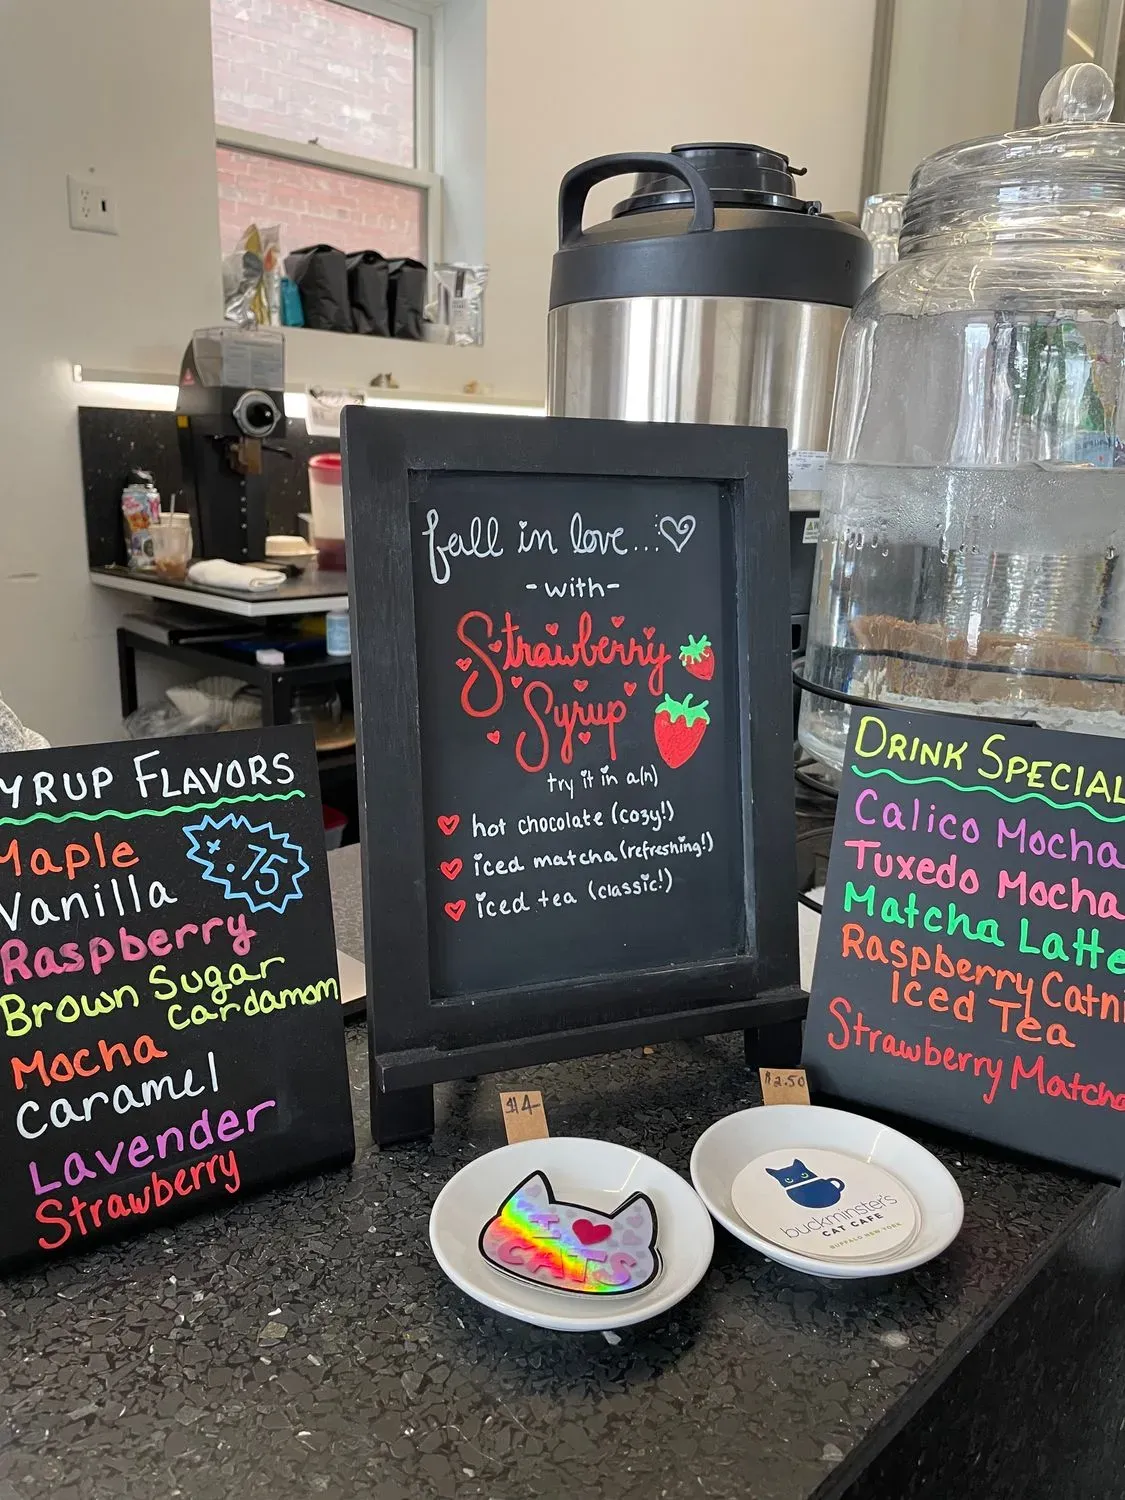 fall in love...
-with-
Strawberry
Syrup
try it in a(n)
hot chocolate (cozy!)
iced matcha (refreshing!)
iced tea (classic!)
YRUP FLAVORS
Maple
+.75
Vanilla
Raspberry
Brown Sugar
Cardamom
Mocha
Caramel
Lavender
Strawberry
DRINK SPECIAL
Calico Mocha
Tuxedo Mocha
Matcha Latte
Raspberry Catni
Iced Tea
Strawberry Matcha
$4-
$2.50
CATS
buckminster's
CAT CAFE
BUFFALO NEW YORK